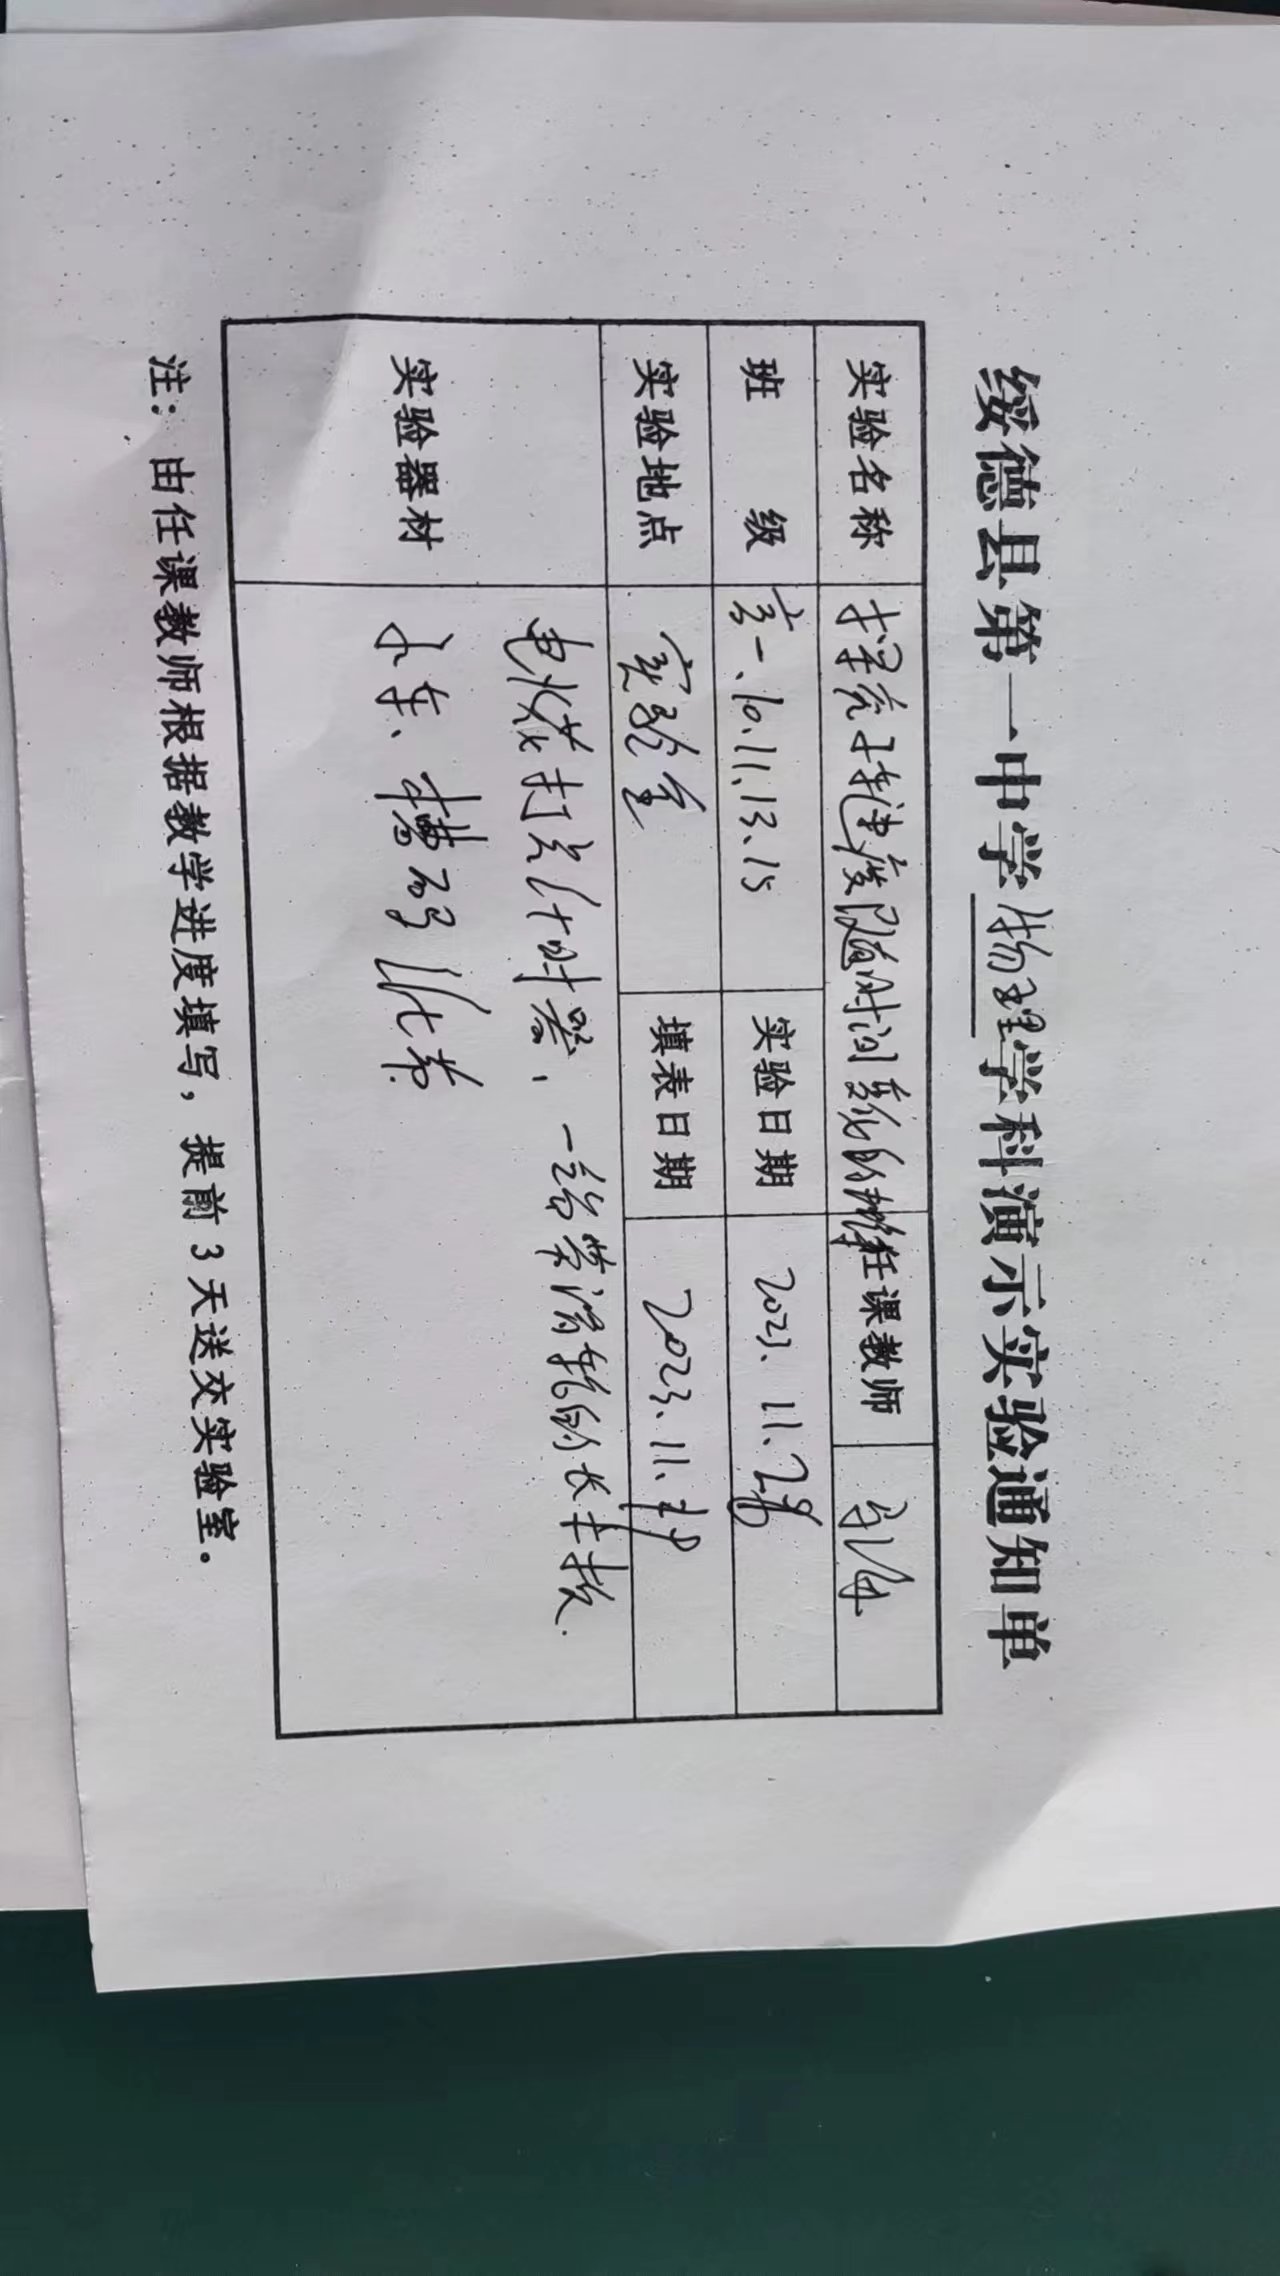 绥德县第一中学物理学科演示实验通知单
实验名称 探究小车速度随时间变化的规律 任课教师
班级 高一、10.11.13.15 实验日期 2023.11.28
实验地点 实验室 填表日期 2023.11.
实验器材 电火花打点计时器、一端带滑轮的长木板.
小车、槽码、纸带.
注：由任课教师根据教学进度填写，提前3天送交实验室。